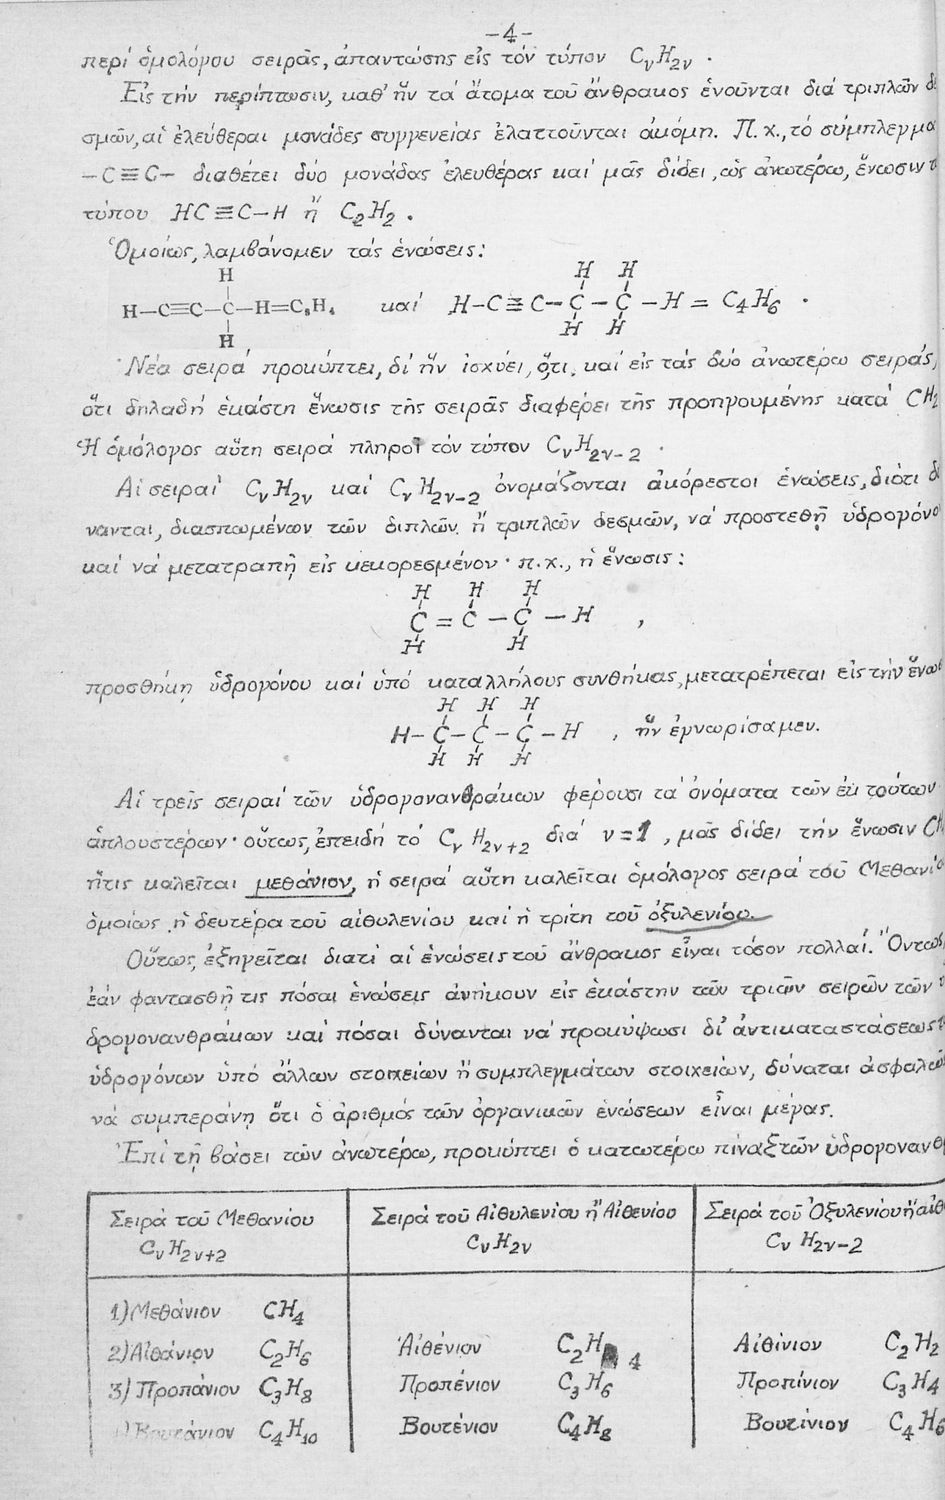 -4-
περί ὁμολόγου σειρᾶς, ἀπαντώσης εἰς τόν τύπον CνH2ν .
Εἰς τήν περίπτωσιν, καθ' ἥν τά ἄτομα τοῦ ἄνθρακος ἑνοῦνται διά τριπλῶν δε
σμῶν, αἱ ἐλεύθεραι μονάδες συγγενείας ἐλαττοῦνται ἀκόμη. Π.χ., τό σύμπλεγμα
-C≡C- διαθέτει δύο μονάδας ἐλευθέρας καί μᾶς δίδει, ὡς ἀνωτέρω, ἕνωσιν
τύπου HC≡C-H ἤ C2H2 .
Ὁμοίως, λαμβάνομεν τάς ἑνώσεις:
H H H
H—C≡C—C—H=C3H4 καί H-C≡C-C-C-H = C4H6 .
H H H
Νέα σειρά προκύπτει, δι' ἥν ἰσχύει, ὅτι καί εἰς τάς δύο ἀνωτέρω σειράς,
ὅτι δηλαδή ἑκάστη ἕνωσις τῆς σειρᾶς διαφέρει τῆς προηγουμένης κατά CH2
Ἡ ὁμόλογος αὕτη σειρά πληροῖ τόν τύπον CνH2ν-2 .
Αἱ σειραί CνH2ν καί CνH2ν-2 ὀνομάζονται ἀκόρεστοι ἑνώσεις, διότι δύ
νανται, διασπωμένων τῶν διπλῶν ἤ τριπλῶν δεσμῶν, νά προστεθῇ ὑδρογόνο
καί νά μετατραπῇ εἰς κεκορεσμένον· π.χ., ἡ ἕνωσις:
H H H
C = C - C - H ,
H H
προσθήκῃ ὑδρογόνου καί ὑπό καταλλήλους συνθήκας, μετατρέπεται εἰς τήν ἕνω
H H H
H-C-C-C-H , ἥν ἐγνωρίσαμεν.
H H H
Αἱ τρεῖς σειραί τῶν ὑδρογονανθράκων φέρουσι τά ὀνόματα τῶν ἐκ τούτων
ἁπλουστέρων· οὕτως, ἐπειδή τό CνH2ν+2 διά ν=1 , μᾶς δίδει τήν ἕνωσιν CH
ἥτις καλεῖται μεθάνιον, ἡ σειρά αὕτη καλεῖται ὁμόλογος σειρά τοῦ Μεθανίο
ὁμοίως ἡ δευτέρα τοῦ αἰθυλενίου καί ἡ τρίτη τοῦ ὀξυλενίου.
Οὕτως, ἐξηγεῖται διατί αἱ ἑνώσεις τοῦ ἄνθρακος εἶναι τόσον πολλαί. Ὄντως,
ἐάν φαντασθῇ τις πόσαι ἑνώσεις ἀνήκουν εἰς ἑκάστην τῶν τριῶν σειρῶν τῶν ὑ
δρογονανθράκων καί πόσαι δύνανται νά προκύψωσι δι' ἀντικαταστάσεως
ὑδρογόνων ὑπό ἄλλων στοιχείων ἤ συμπλεγμάτων στοιχείων, δύναται ἀσφαλῶς
νά συμπεράνῃ ὅτι ὁ ἀριθμός τῶν ὀργανικῶν ἑνώσεων εἶναι μέγας.
Ἐπί τῇ βάσει τῶν ἀνωτέρω, προκύπτει ὁ κατωτέρω πίναξ τῶν ὑδρογονανθρ
Σειρά τοῦ Μεθανίου
CνH2ν+2
1) Μεθάνιον CH4
2) Αἰθάνιον C2H6
3) Προπάνιον C3H8
4) Βουτάνιον C4H10
Σειρά τοῦ Αἰθυλενίου ἤ Αἰθενίου
CνH2ν
Αἰθένιον C2H4
Προπένιον C3H6
Βουτένιον C4H8
Σειρά τοῦ Ὀξυλενίου ἤ αἰθ
CνH2ν-2
Αἰθίνιον C2H2
Προπίνιον C3H4
Βουτίνιον C4H6